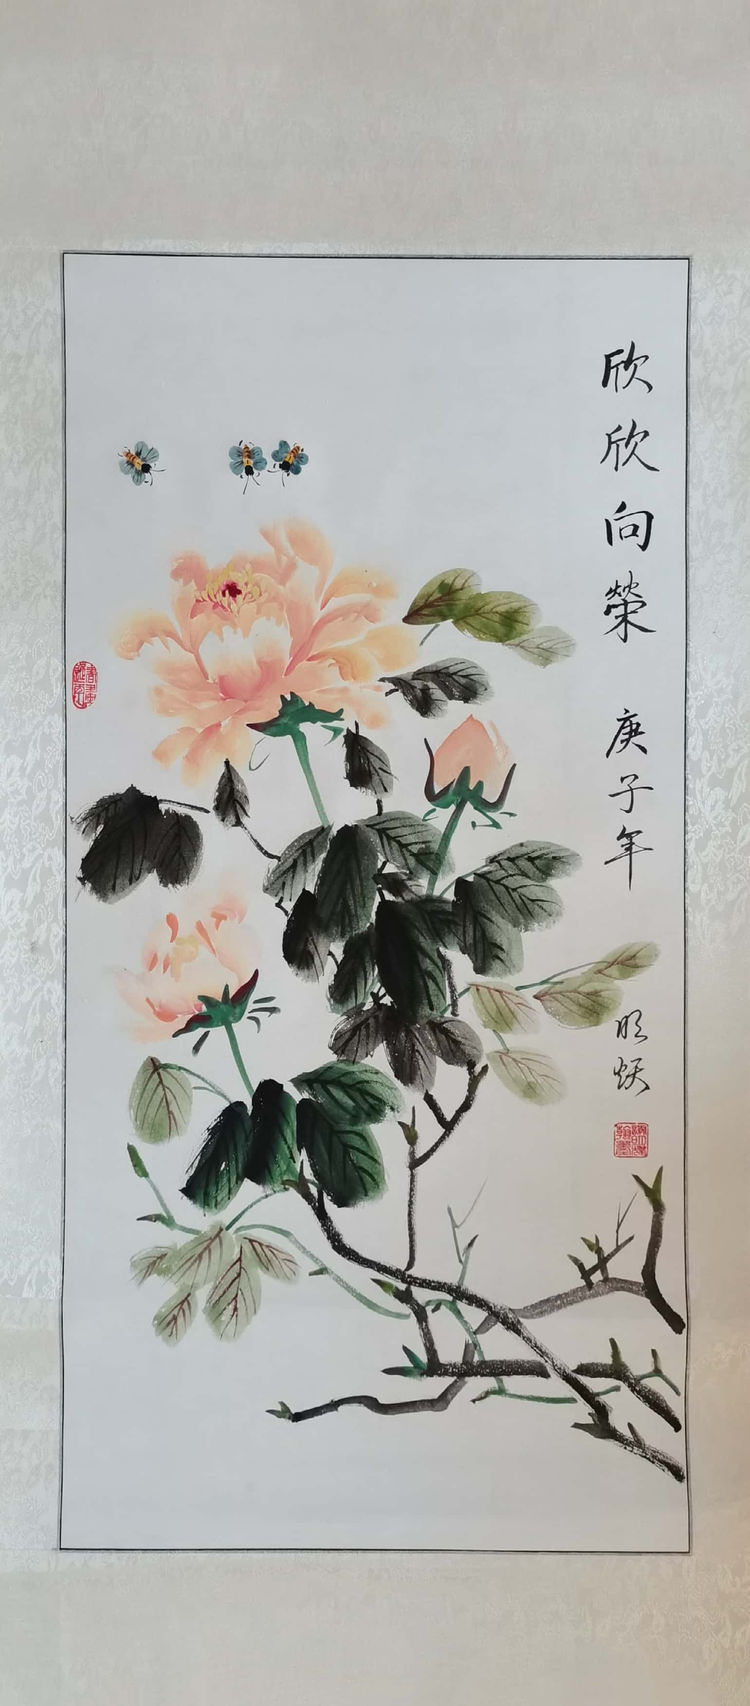 欣欣向榮 庚子年
明